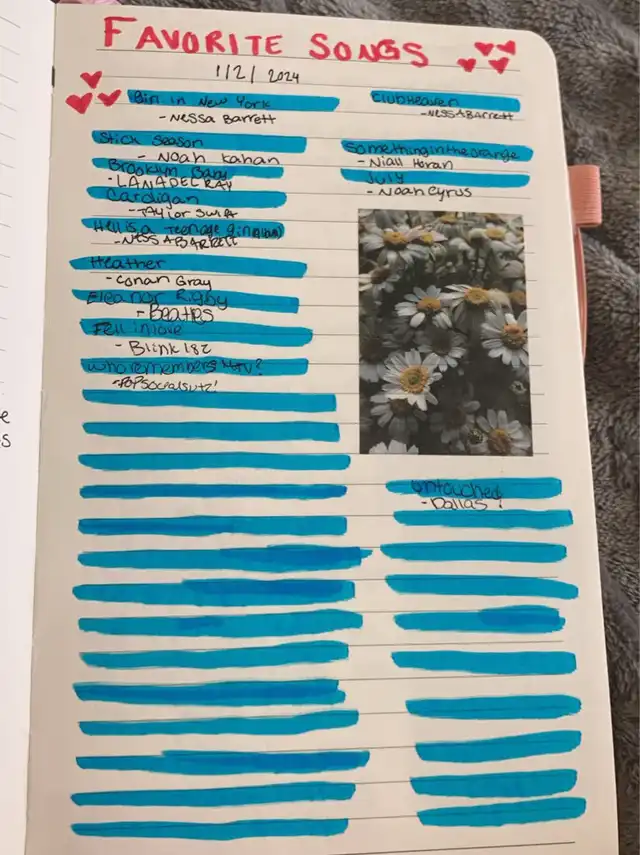 FAVORITE SONGS
1/2/2024
Girl in New York
- Nessa Barrett
Stick Season
- Noah Kahan
Brooklyn Baby
- LANA DEL RAY
Cardigan
- TAYlor Swift
Hell is a teenage girl
- NESSA BARRETT
Heather
- Conan Gray
Eleanor Rigby
- Beatles
Fell in love
- Blink 182
who remembers MTV?
Club Heaven
- NESSA BArrett
Something in the orange
- Niall Horan
July
- Noah Cyrus
Untouched
- Dallas